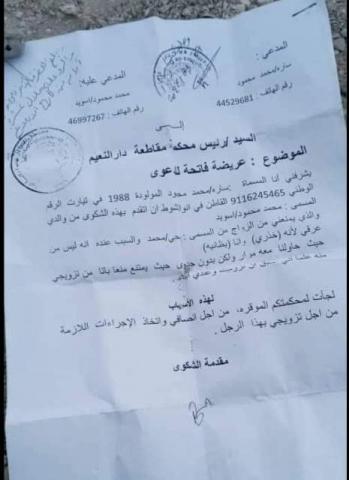 المدعي :
ساره/محمد محمود
رقم الهاتف : 44529681
المدعي عليه:
محمد محمود/اسويد
رقم الهاتف : 46997267
إلى
السيد /رئيس محكمة مقاطعة دارالنعيم
الموضوع : عريضة فاتحة لدعوى
يشرفني انا المسماة :ساره/محمد محمود المولودة 1988 في تيارت الرقم
الوطني 9116245465 القاطن في انواكشوط ان اتقدم بهذه الشكوى من والدي
المسمى : محمد محمود/اسويد
والذي يمنعني من الزواج من المسمى : حي/محمد والسبب عنده انه ليس من
عرقي لأنه (خذري) وانا (بظانيه)
حيث حاولنا معه مرار ولكن بدون جدوى حيث يمتنع منعا باتا من تزويجي
منه علما اني
لهذه الأسباب
لجأت لمحكمتكم الموقره، من اجل انصافي واتخاذ الإجراءات اللازمة
من اجل تزويجي بهذا الرجل .
مقدمة الشكوى